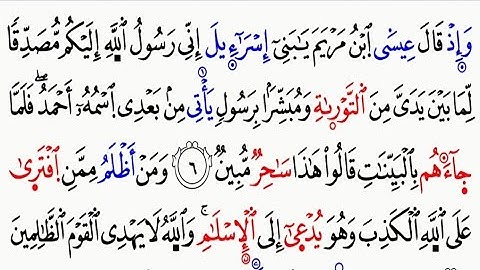 وَإِذْ قَالَ عِيسَى اِبْنُ مَرْيَمَ يَٰبَنِيٓ إِسْرَآءِيلَ إِنِّي رَسُولُ اُ۬للَّهِ إِلَيْكُم مُّصَدِّقًا
لِّمَا بَيْنَ يَدَيَّ مِنَ اَ۬لتَّوْرَىٰةِ وَمُبَشِّرَۢا بِرَسُولٍ يَأْتِي مِنۢ بَعْدِي اِسْمُهُۥٓ أَحْمَدُۖ فَلَمَّا
جَآءَهُم بِالْبَيِّنَٰتِ قَالُوا هَٰذَا سَٰحِرٌ مُّبِينٌ ٦ وَمَنْ أَظْلَمُ مِمَّنِ اِفْتَرَىٰ
عَلَى اَ۬للَّهِ اِ۬لْكَذِبَ وَهُوَ يُدْعَىٰٓ إِلَى اَ۬لْإِسْلَٰمِۚ وَاللَّهُ لَا يَهْدِي اِ۬لْقَوْمَ اَ۬لظَّٰلِمِينَ